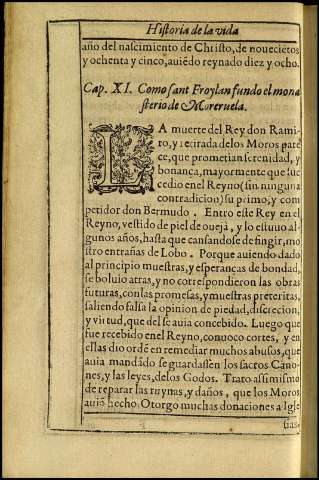 Historia de la vida
año del nascimiento de Christo, de nouecietos
y ochenta y cinco, auiẽdo reynado diez y ocho.
Cap. XI. Como sant Froylan fundo el mona
sterio de Moreruela.
LA muerte del Rey don Rami-
ro, y retirada de los Moros pare
ce, que prometian serenidad, y
bonança, mayormente que suc
cedio en el Reyno (sin ninguna
contradicion) su primo, y com
petidor don Bermudo. Entro este Rey en el
Reyno, vestido de piel de oueja, y lo estuuo al-
gunos años, hasta que cansandose de fingir, mo
stro entrañas de Lobo. Porque auiendo dado
al principio muestras, y esperanças de bondad,
se boluio atras, y no correspondieron las obras
futuras, con las promesas, y muestras preteritas,
saliendo falsa la opinion de piedad, discrecion,
y virtud, que del se auia concebido. Luego que
fue recebido en el Reyno, conuoco cortes, y en
ellas dio ordẽ en remediar muchos abusos, que
auia mandãdo se guardassẽ los sacros Cano-
nes, y las leyes, de los Godos. Trato assimismo
de reparar las ruynas, y daños, que los Moros
auiã hecho. Otorgo muchas donaciones a Igle
sias.